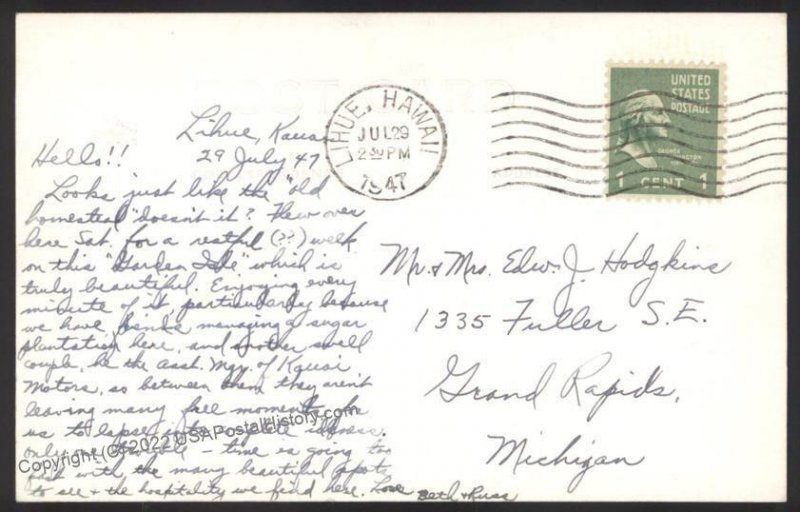 Lihue, Kauai
29 July 47
Hello!!
Looks just like the "old
homestead" doesn't it? Flew over
here Sat. for a restful (??) week
on this "Garden Isle" which is
truly beautiful. Enjoying every
minute of it particularly because
we have friends managing a sugar
plantation here, and another swell
couple, he the Asst. Mgr. of Kauai
Motors, so between them they aren't
leaving many free moments
us to lapse into
only - time is going too
fast with the many beautiful spots
to see & the hospitality we find here. Love Beth & Russ
LIHUE, HAWAII
JUL 29
2 30 PM
1947
UNITED
STATES
POSTAGE
GEORGE
WASHINGTON
1 CENT 1
Mr. & Mrs. Edw. J. Hodgkins
1335 Fuller S.E.
Grand Rapids,
Michigan
Copyright (C) 2022 USAPostalHistory.com